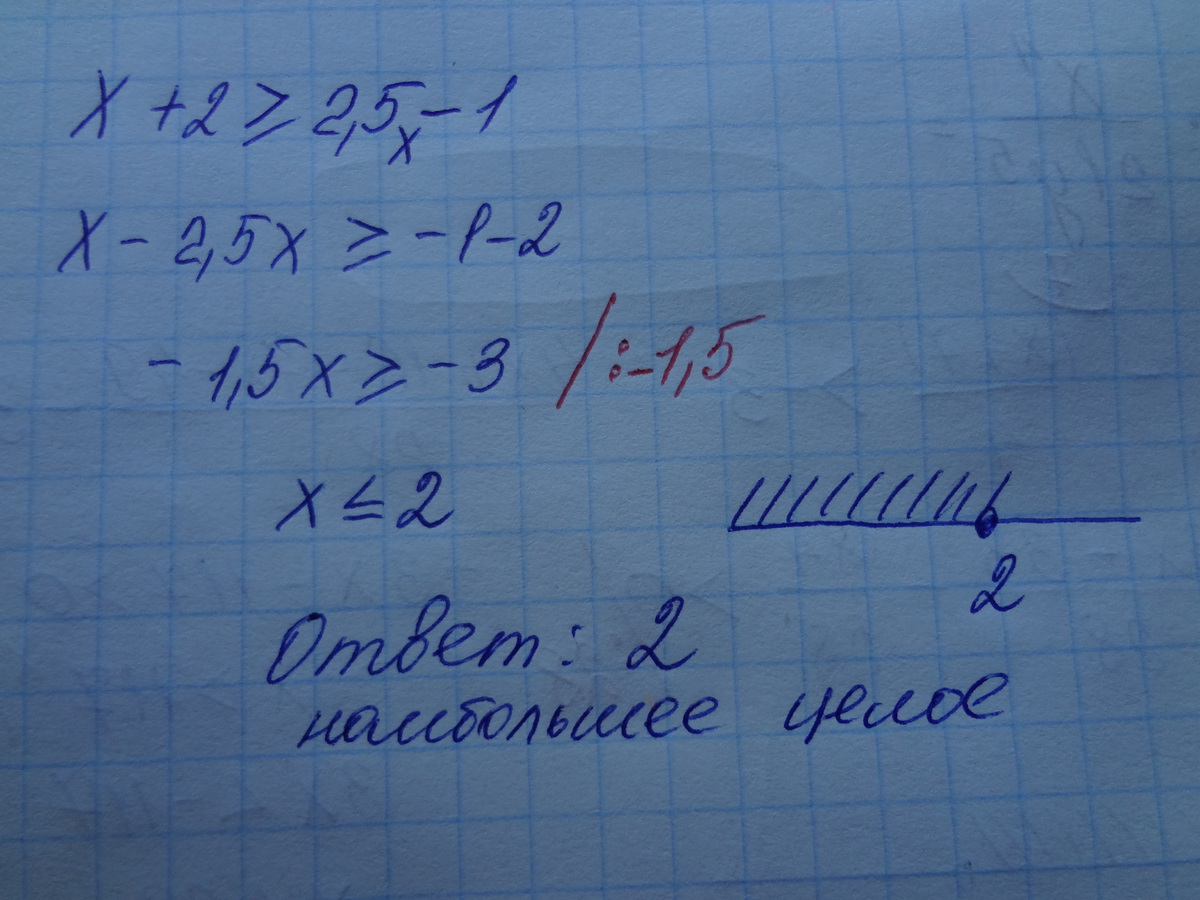 x + 2 ≥ 2,5x - 1
x - 2,5x ≥ -1 - 2
- 1,5x ≥ -3 / : -1,5
x ≤ 2
2
Ответ: 2
наибольшее целое